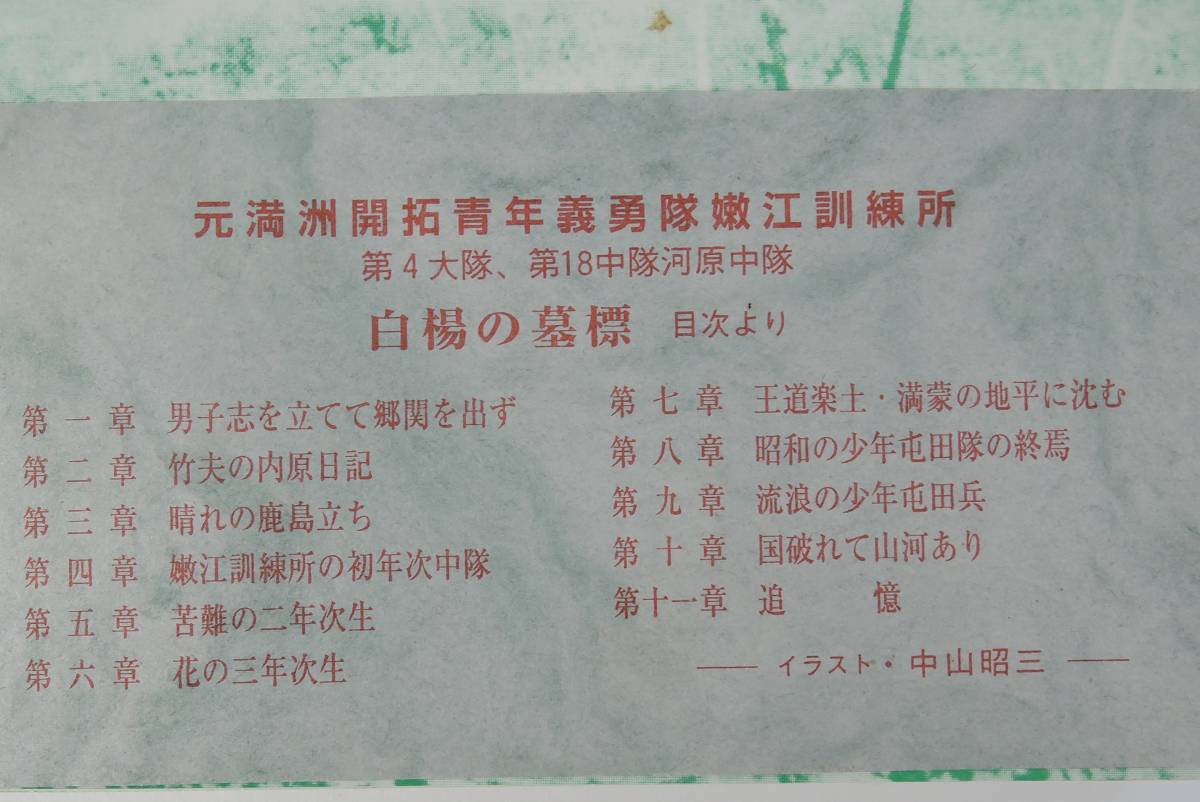 元満洲開拓青年義勇隊嫩江訓練所
第4大隊、第18中隊河原中隊
白楊の墓標 目次より
第一章 男子志を立てて郷関を出ず
第二章 竹夫の内原日記
第三章 晴れの鹿島立ち
第四章 嫩江訓練所の初年次中隊
第五章 苦難の二年次生
第六章 花の三年次生
第七章 王道楽土・満蒙の地平に沈む
第八章 昭和の少年屯田隊の終焉
第九章 流浪の少年屯田兵
第十章 国破れて山河あり
第十一章 追憶
―― イラスト・中山昭三 ――